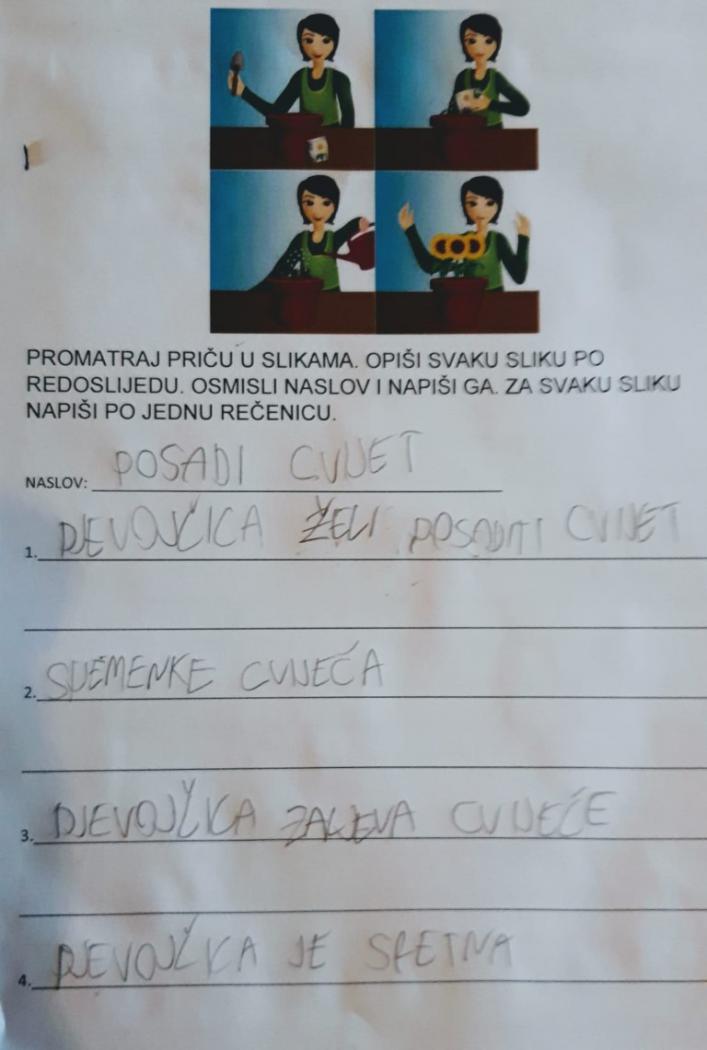 PROMATRAJ PRIČU U SLIKAMA. OPIŠI SVAKU SLIKU PO
REDOSLIJEDU. OSMISLI NASLOV I NAPIŠI GA. ZA SVAKU SLIKU
NAPIŠI PO JEDNU REČENICU.
NASLOV: POSADI CVIJET
1. DJEVOJČICA ŽELI POSADITI CVIJET
2. SJEMENKE CVIJEĆA
3. DJEVOJČICA ZALJEVA CVIJEĆE
4. DJEVOJČICA JE SRETNA